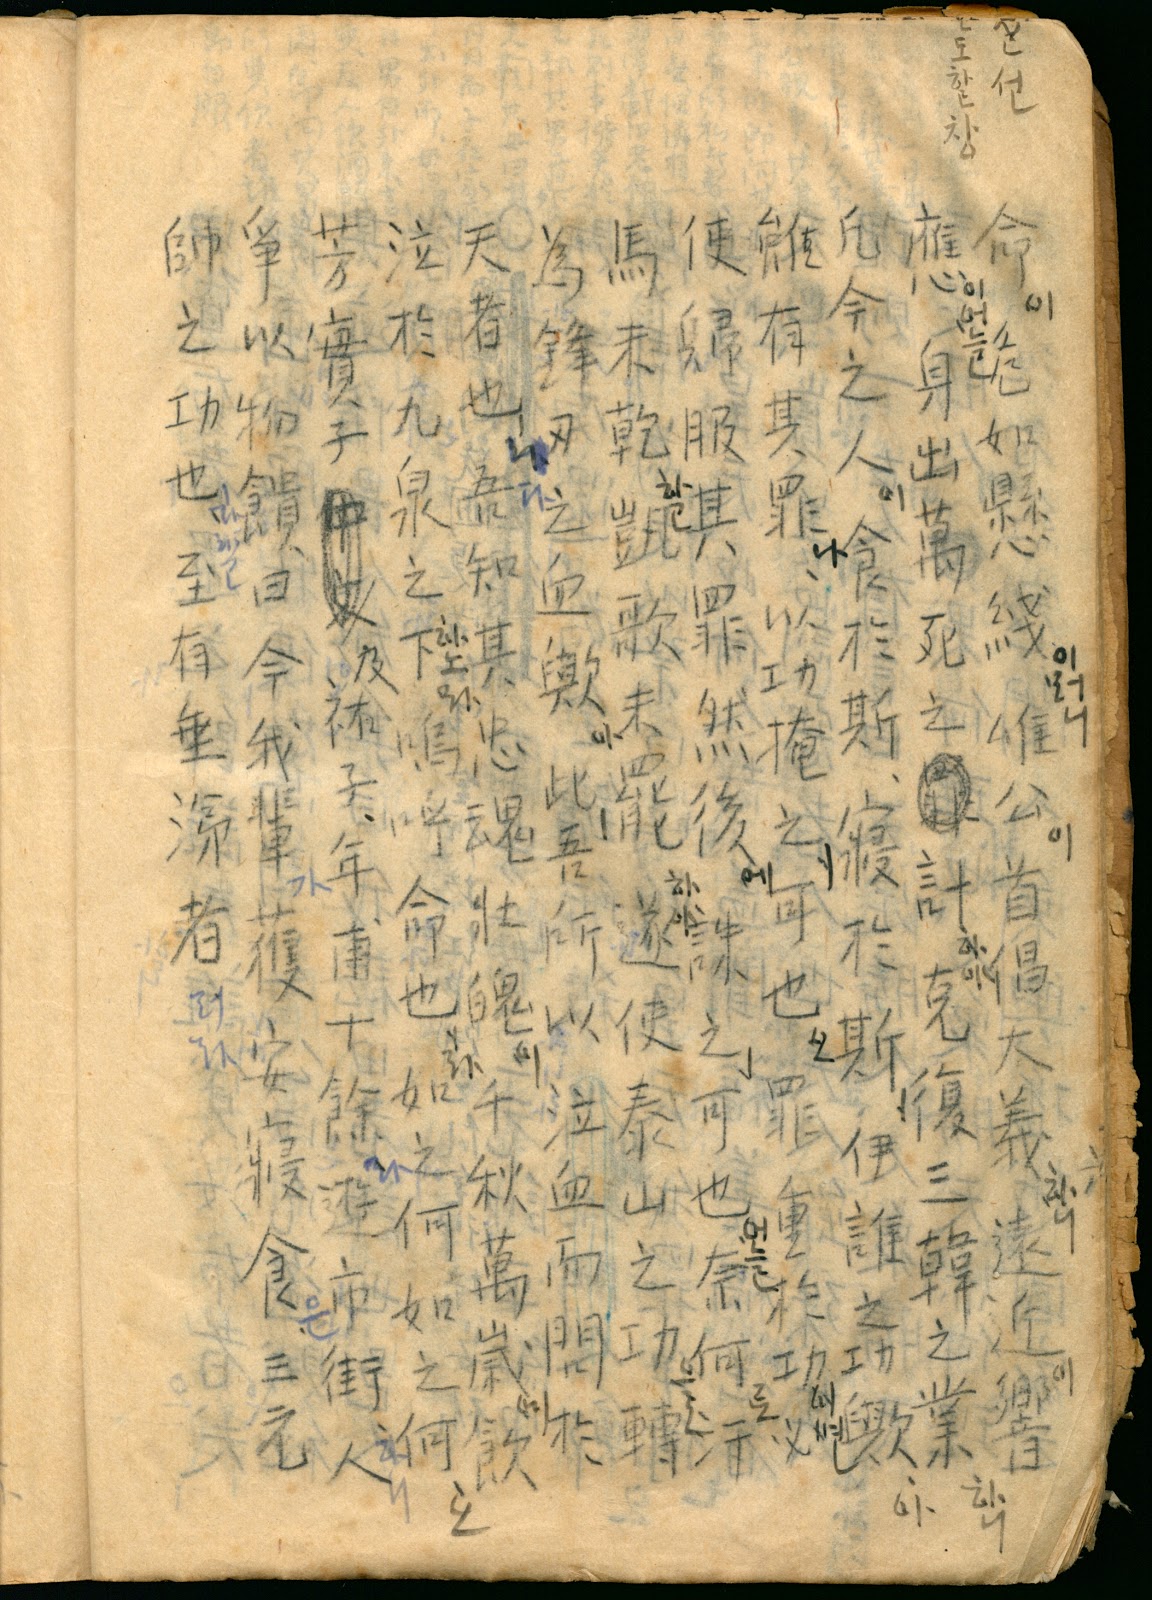 도할창
命이 危如懸綫이러니 惟公이 首倡大義하니 遠近이 響
應이어늘 身出萬死之計하야 克復三韓之業하니
凡今之人이 食於斯、寢於斯ㅣ 伊誰之功歟아
雖有其罪、나 以功掩之ㅣ 可也오 罪重於功 必
使歸服其罪然後에 誅之ㅣ 可也어늘 奈何로 汗
馬未乾하 凱歌未罷하야 遂使泰山之功으로 轉
爲鋒刃之血歟아 此ㅣ 吾所以泣血而問於
天者也니다 吾知其忠魂壯魄이 千秋萬歲에 飮
泣於九泉之下하노라 嗚呼命也라 如之何如之何오
芳實子 及祐子、年甫十餘라 遊市街하니 人
爭以物饋曰今我輩가 獲安寢食은 三元
帥之功也라하고 至有垂涕者러라